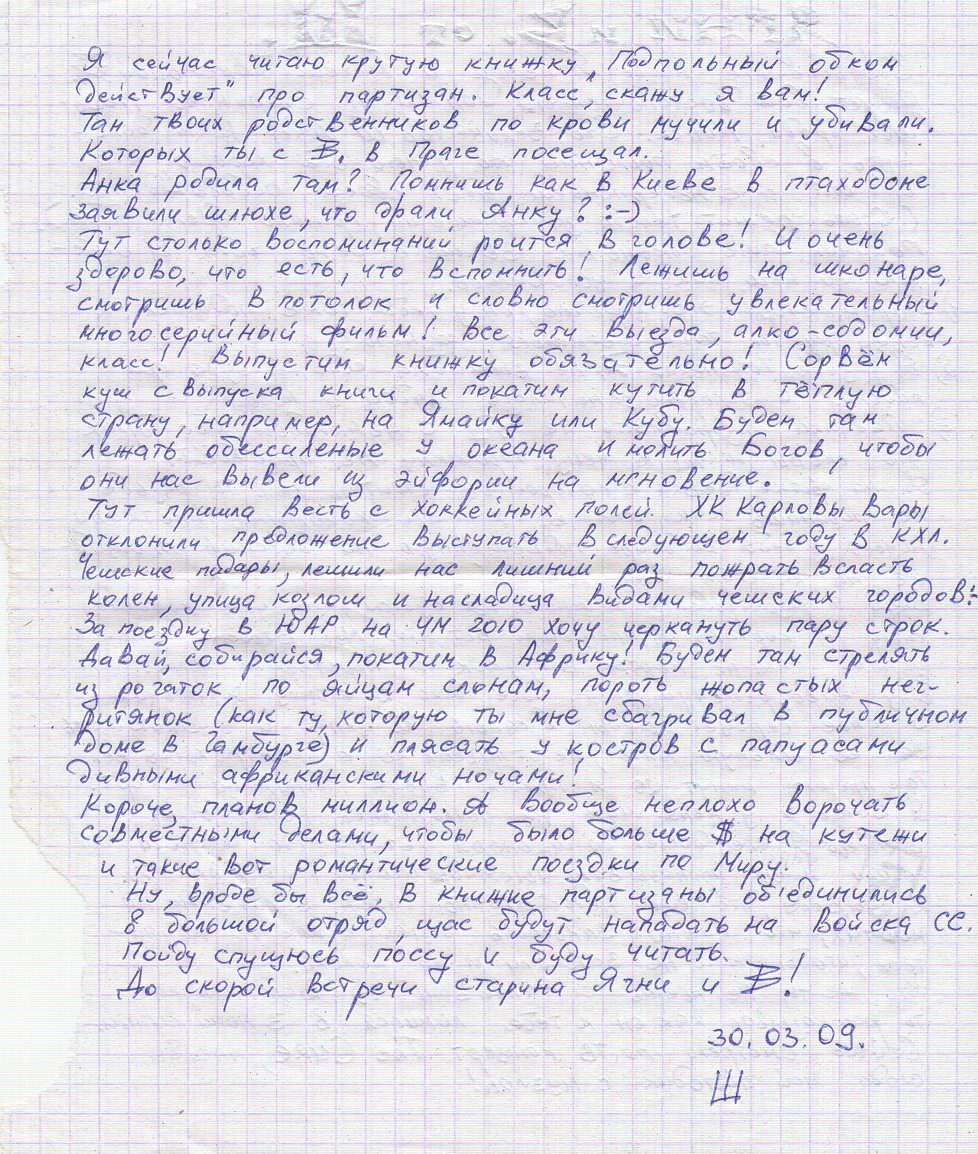 Я сейчас читаю крутую книжку „Подпольный обком
действует" про партизан. Класс, скажу я вам!
Там твоих родственников по крови мучили и убивали.
Которых ты с В. в Праге посещал.
Анка родила там? Помнишь как в Киеве в птаходоме
заявили шлюхе, что драли Анку? :-)
Тут столько воспоминаний роится в голове! И очень
здорово, что есть, что вспомнить! Лежишь на шконаре,
смотришь в потолок и словно смотришь увлекательный
многосерийный фильм! Все эти выезда, алко-содомии,
класс! Выпустим книжку обязательно! Сорвём
куш с выпуска книги и покатим кутить в тёплую
страну, например, на Ямайку или Кубу. Будем там
лежать обессиленые у океана и молить Богов, чтобы
они нас вывели из эйфории на мгновение.
Тут пришла весть с хоккейных полей. ХК Карловы Вары
отклонили предложение выступать в следующем году в КХЛ.
Чешские пидары, лешили нас лишний раз пожрать всласть
колен, упица козлом и насладица видами чешских городов:-
За поездку в ЮАР на ЧМ 2010 хочу черкануть пару строк.
Давай, собирайся, покатим в Африку! Будем там стрелять
из рогаток по яйцам слонам, пороть жопастых нег-
ритянок (как ту, которую ты мне сбагривал в публичном
доме в Гамбурге) и плясать у костров с папуасами
дивными африканскими ночами!
Короче, планов миллион. А вообще неплохо ворочать
совместными делами, чтобы было больше $ на кутежи
и такие вот романтические поездки по Миру.
Ну, вроде бы всё. В книжке партизаны объединились
в большой отряд, щас будут нападать на войска СС.
Пойду спущюсь поссу и буду читать.
До скорой встречи старина Ягни и В!
30.03.09.
Ш